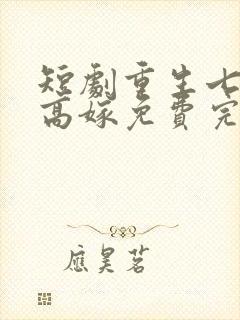 短劇重生七
高嫁免費完
應昊茗